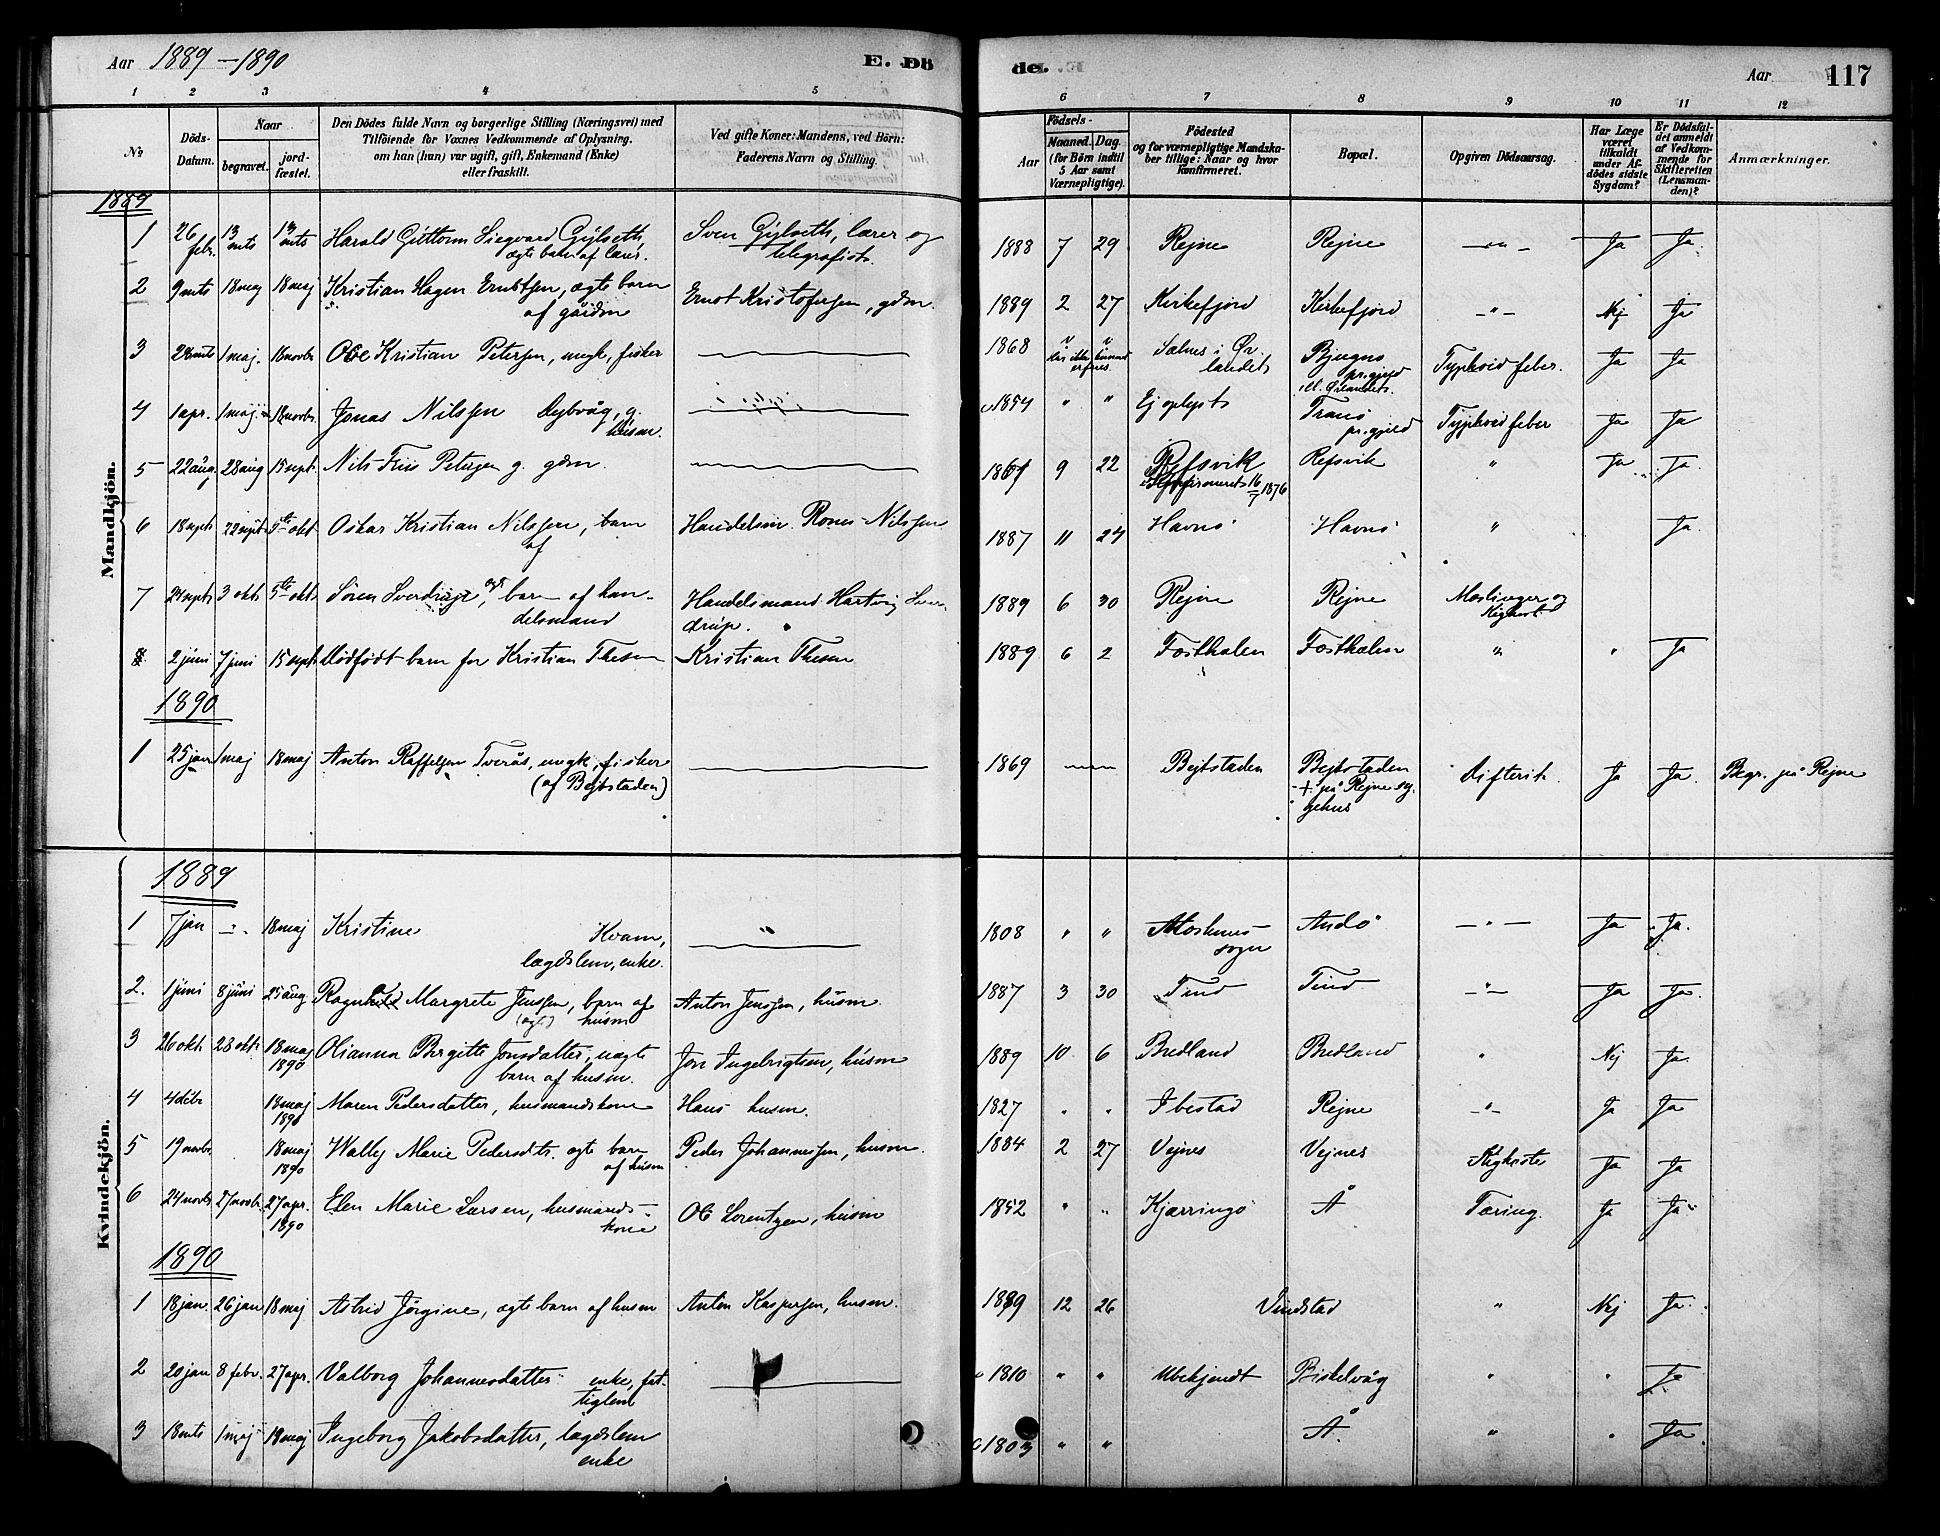 Aar 1889–1890 E. Dö
de. E. Aar 117
1 2 3 4 5 6 7 8 9 10 11 12
№
Döds-Datum.
Naar
begravet.
jord-fæstet.
Den Dödes fulde Navn og borgerlige Stilling (Næringsvei) med
Tilföiende for Voxnes Vedkommende af Oplysning.
om han (hun) var ugift, gift, Enkemand (Enke)
eller fraskilt.
Ved gifte Koner: Mandens, ved Börn:
Faderens Navn og Stilling.
Födsels-
Aar
Maaned. Dag.
(for Börn indtil
5 Aar samt
Værnepligtige).
Födested
og for værnepligtige Mandska-
ber tillige: Naar og hvor
konfirmeret.
Bopæl.
Opgiven Dödsaarsag.
Har Læge
været
tilkaldt
under Af-
dödes sidste
Sygdom?
Er Dödsfal-
det anmeldt
af Vedkom-
mende for
Skifteretten
(Lensman-
den)?
Anmærkninger.
Mandkjön.
1889
1 26 febr. 13 mts 13 mts Harald Guttorm Siegvard Gylseth, Sven Gylseth, lærer og 1888 7 29 Rejne Rejne –"– Ja Ja.
ægte barn af lærer. telegrafist.
2 9 mts 18 maj 18 maj Kristian Hagen Ernstsen, ægte barn Ernst Kristofersen, gdm. 1889 2 27 Kirkefjord Kirkefjord –"– Nej Ja
af gårdm
3 28 mts 1 maj. 18 novbr Ole Kristian Petersen, ungk, fisker 1868 " " Sælnes i Ør Bjugns Typhoid feber. Ja Ja
landet pr.gjeld
4 1 apr. 1 maj 18 novbr. Jonas Nilssen Dybvåg, g. 1854 " " Ej oplyst Tranø Typhoid feber Ja Ja
husm. pr.gjeld
5 22 aug. 28 aug 15 sept. Nils Friis Petersen g. gdm. 1861 9 22 Refsvik Refsvik " Ja Ja.
Konfirmeret 16/7 1876
6 18 sept. 22 sept. 5te okt. Oskar Kristian Nilssen, barn Handelsm. Rones Nilssen 1887 11 24 Havnø Havnø " Ja.
af
7 24 sept. 3 okt. 5te okt. Søren Sverdrup, ægt. barn af han- Handelsmand Hartvig Sver- 1889 6 30 Rejne Rejne Meslinger og
delsmand drup. Kighoste
8 2 juni 7 juni 15 sept. Dødfødt barn for Kristian Thesen Kristian Thesen 1889 6 2 Forsthalen Forsthalen " " Ja
1890
1 25 jan 1 maj 18 maj Anton Raffelsen Tverås, ungk, fisker 1869 Bejtstaden Bejtstaden Difterit. Ja Ja. Begr. på Rejne
(af Bejtstaden) + på Rejne sy-
gehus
Kvindekjön.
1889
1 7 jan –"– 18 maj Kristine Kvam, 1808 " " Moskenes- Andø –"– Ja Ja.
lægdslem, enke. sogn
2. 1 juni 8 juni 25 aug. Ragnhild Margrete Jenssen, barn af Anton Jenssen, husm. 1887 3 30 Tind Tind –"– Ja Ja.
(ægt) husm
3 26 okt. 28 okt. 18 maj 1890 Olianna Birgitte Jonsdatter, uægte Jon Ingebrigtsen, husm 1889 10 6 Bredland Bredland " Nej Ja.
barn af husm.
4 4 debr 18 maj 1890 Maren Pedersdatter, husmandskone Hans husm. 1827 " " Ibestad Rejne –"– Ja Ja
5 19 novbr. 18 maj 1890 Wally Marie Pedersdtr. ægte barn Peder Johannessen, husm. 1884 2 27 Vejnes Vejnes Kighoste Ja Ja
af husm
6 24 novbr. 27 novbr. 27 apr. 1890 Elen Marie Larsen, husmands- Ole Lorentzen, husm 1852 " " Kjærringø Å Tæring. Ja Ja
kone
1890
1 18 jan. 26 jan 18 maj Astrid Jørgine, ægte barn af husm Anton Kaspersen, husm. 1889 12 26 Vindstad " Nej Ja.
2 20 jan 8 febr. 27 apr. Valborg Johannesdatter enke, fat- 1810 " " Ubekjendt Biskelvåg " " Ja
tiglem
3 18 mts 1 maj 18 maj Ingeborg Jakobsdatter, lægdslem 1803 " " Å. " " Ja
enke